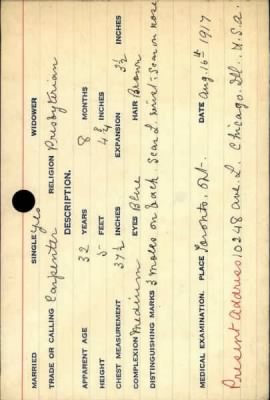 MARRIED SINGLE yes WIDOWER
TRADE OR CALLING Carpenter RELIGION Presbyterian
DESCRIPTION.
APPARENT AGE 32 YEARS 8 MONTHS
HEIGHT 5 FEET 4 3/4 INCHES
CHEST MEASUREMENT 37 1/2 INCHES EXPANSION 3 1/2 INCHES
COMPLEXION Medium EYES Blue HAIR Brown
DISTINGUISHING MARKS 3 moles on Back Scar L. wrist. Scar on nose
MEDICAL EXAMINATION. PLACE Toronto. Ont. DATE Aug. 16th 1917
Present Address 10248 Ave L. Chicago. Ill. U.S.A.